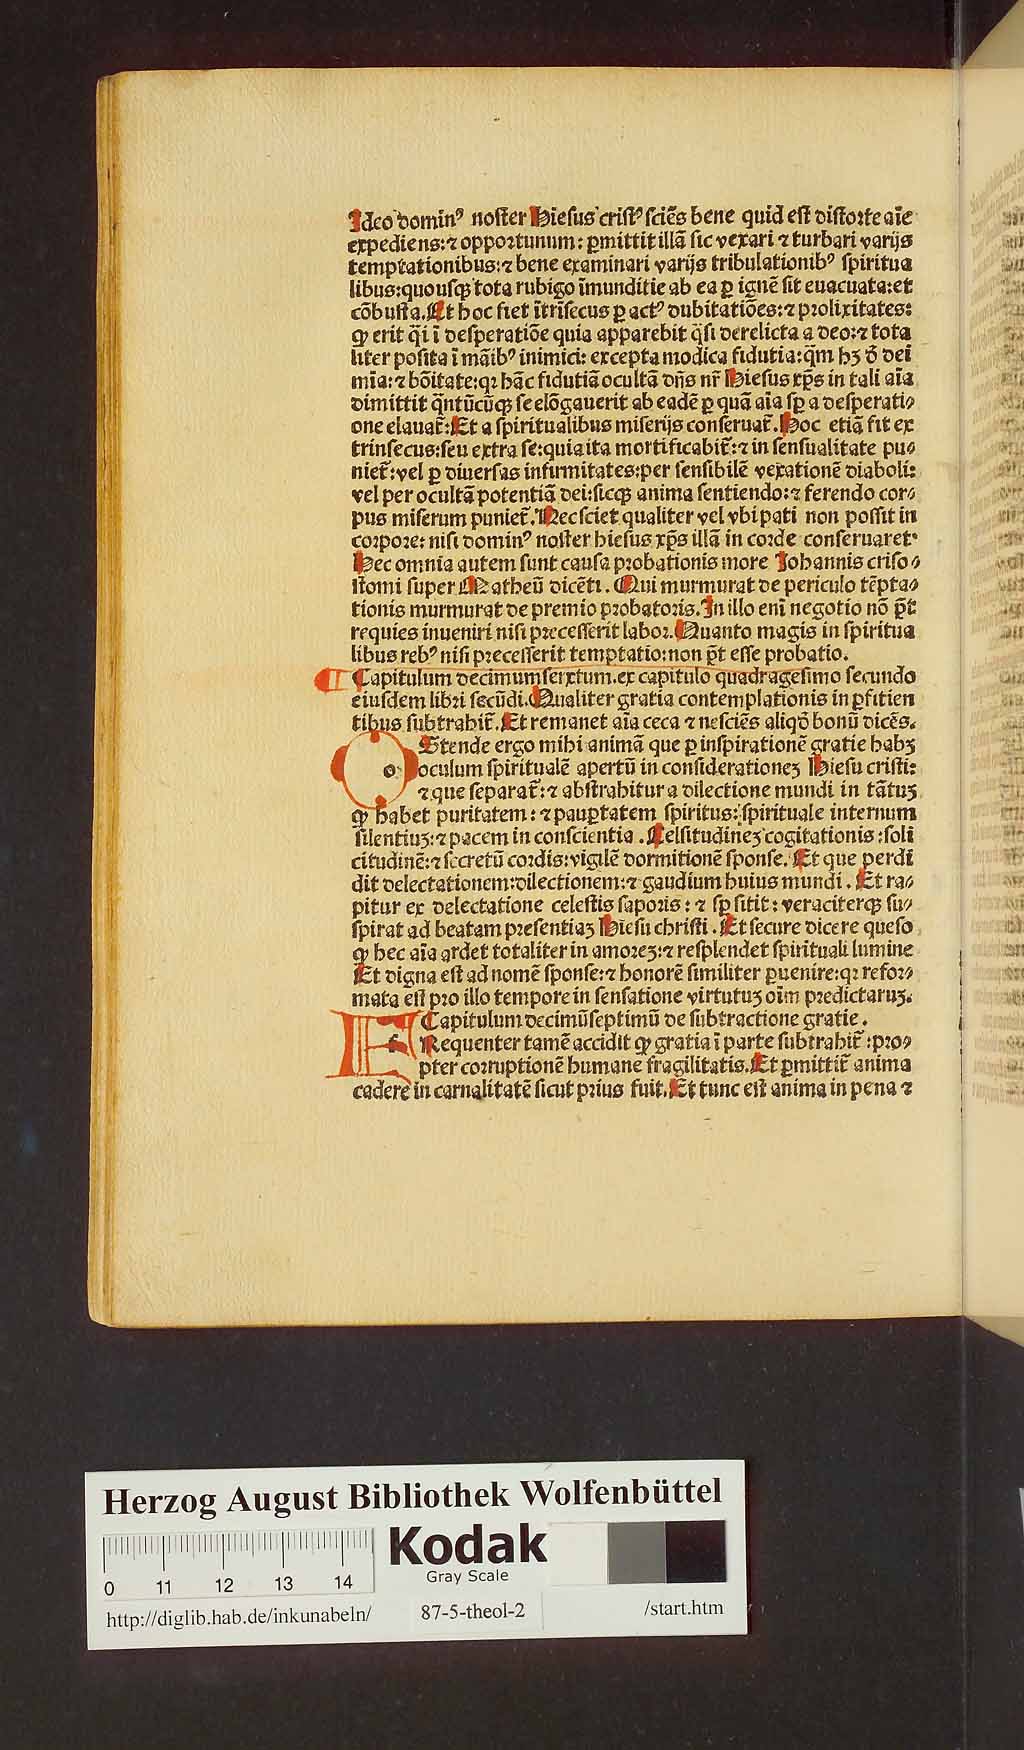 Ideo dominꝰ noster Hiesus cristꝰ sciẽs bene quid est distorte aĩe
expediens:⁊ opportunum: ꝑmittit illã sic vexari ⁊ turbari varijs
temptationibus:⁊ bene examinari varijs tribulationibꝰ spiritua
libus:quousqꝫ tota rubigo ĩmunditie ab ea ꝑ ignẽ sit euacuata:et
cõbusta.Et hoc fiet ĩtrĩsecus ꝑ actꝰ dubitatiões:⁊ prolixitates:
ꝙ erit q̃i ĩ desperatiõe quia apparebit q̃si derelicta a deo:⁊ tota
liter posita ĩ maĩbꝰ inimici: excepta modica fidutia:q̃m hꝫ ð dei
mĩa:⁊ bõitate:qꝛ hãc fidutiã ocultã dñs nr̃ Hiesus xp̃s in tali aĩa
dimittit q̃ntũcũqꝫ se elõgauerit ab eadẽ ꝑ quã aĩa sꝑ a desperati⸗
one eleuat̃:Et a spiritualibus miserijs conseruat̃.Hoc etiã fit ex
trinsecus:seu extra se:quia ita mortificabit̃:⁊ in sensualitate pu⸗
niet̃:vel ꝑ diuersas infirmitates:per sensibilẽ vexationẽ diaboli:
vel per ocultã potentiã dei:sicqꝫ anima sentiendo:⁊ ferendo cor⸗
pus miserum puniet̃.Nec sciet qualiter vel vbi pati non possit in
corpore: nisi dominꝰ noster hiesus xp̃s illã in corde conseruaret.
Hec omnia autem sunt causa probationis more Johannis criso⸗
stomi super Matheũ dicẽti. Qui murmurat de periculo tẽpta⸗
tionis murmurat de premio probatoris.In illo enĩ negotio nõ p̃t
requies inueniri nisi precesserit labor.Quanto magis in spiritua
libus rebꝰ nisi precesserit temptatio:non p̃t esse probatio.
Capitulum decimumsextum.ex capitulo quadragesimo secundo
eiusdem libri secũdi.Qualiter gratia contemplationis in ꝑfitien
tibus subtrahit̃.Et remanet aĩa ceca ⁊ nesciẽs aliqð bonũ dicẽs.
oStende ergo mihi animã que ꝑ inspirationẽ gratie habꝫ
oculum spiritualẽ apertũ in considerationeꝫ Hiesu cristi:
⁊ que separat̃:⁊ abstrahitur a dilectione mundi in tãtuꝫ
ꝙ habet puritatem: ⁊ pauꝑtatem spiritus:spirituale internum
silentiuꝫ:⁊ pacem in conscientia . Celsitudineꝫ cogitationis :soli
citudinẽ:⁊ secretũ cordis:vigilẽ dormitionẽ sponse. Et que perdi
dit delectationem:dilectionem:⁊ gaudium huius mundi . Et ra⸗
pitur ex delectatione celestis saporis: ⁊ sꝑ sitit: veraciterqꝫ su⸗
spirat ad beatam presentiaꝫ Hiesu christi . Et secure dicere queso
ꝙ hec aĩa ardet totaliter in amoreꝫ:⁊ resplendet spirituali lumine
Et digna est ad nomẽ sponse:⁊ honorẽ similiter ꝑuenire:qꝛ refor⸗
mata est pro illo tempore in sensatione virtutuꝫ oĩm predictaruꝫ.
Capitulum decimũseptimũ de subtractione gratie .
fRequenter tamẽ accidit ꝙ gratia ĩ parte subtrahit̃ :pro⸗
pter corruptionẽ humane fragilitatis.Et ꝑmittit̃ anima
cadere in carnalitatẽ sicut prius fuit.Et tunc est anima in pena ⁊
Herzog August Bibliothek Wolfenbüttel
Kodak
Gray Scale
0 11 12 13 14
http://diglib.hab.de/inkunabeln/ 87-5-theol-2 /start.htm